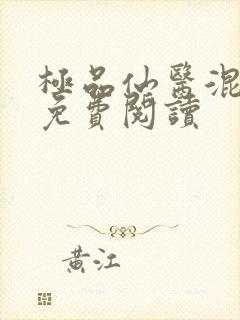 極品仙醫混
免費閱讀
黄江